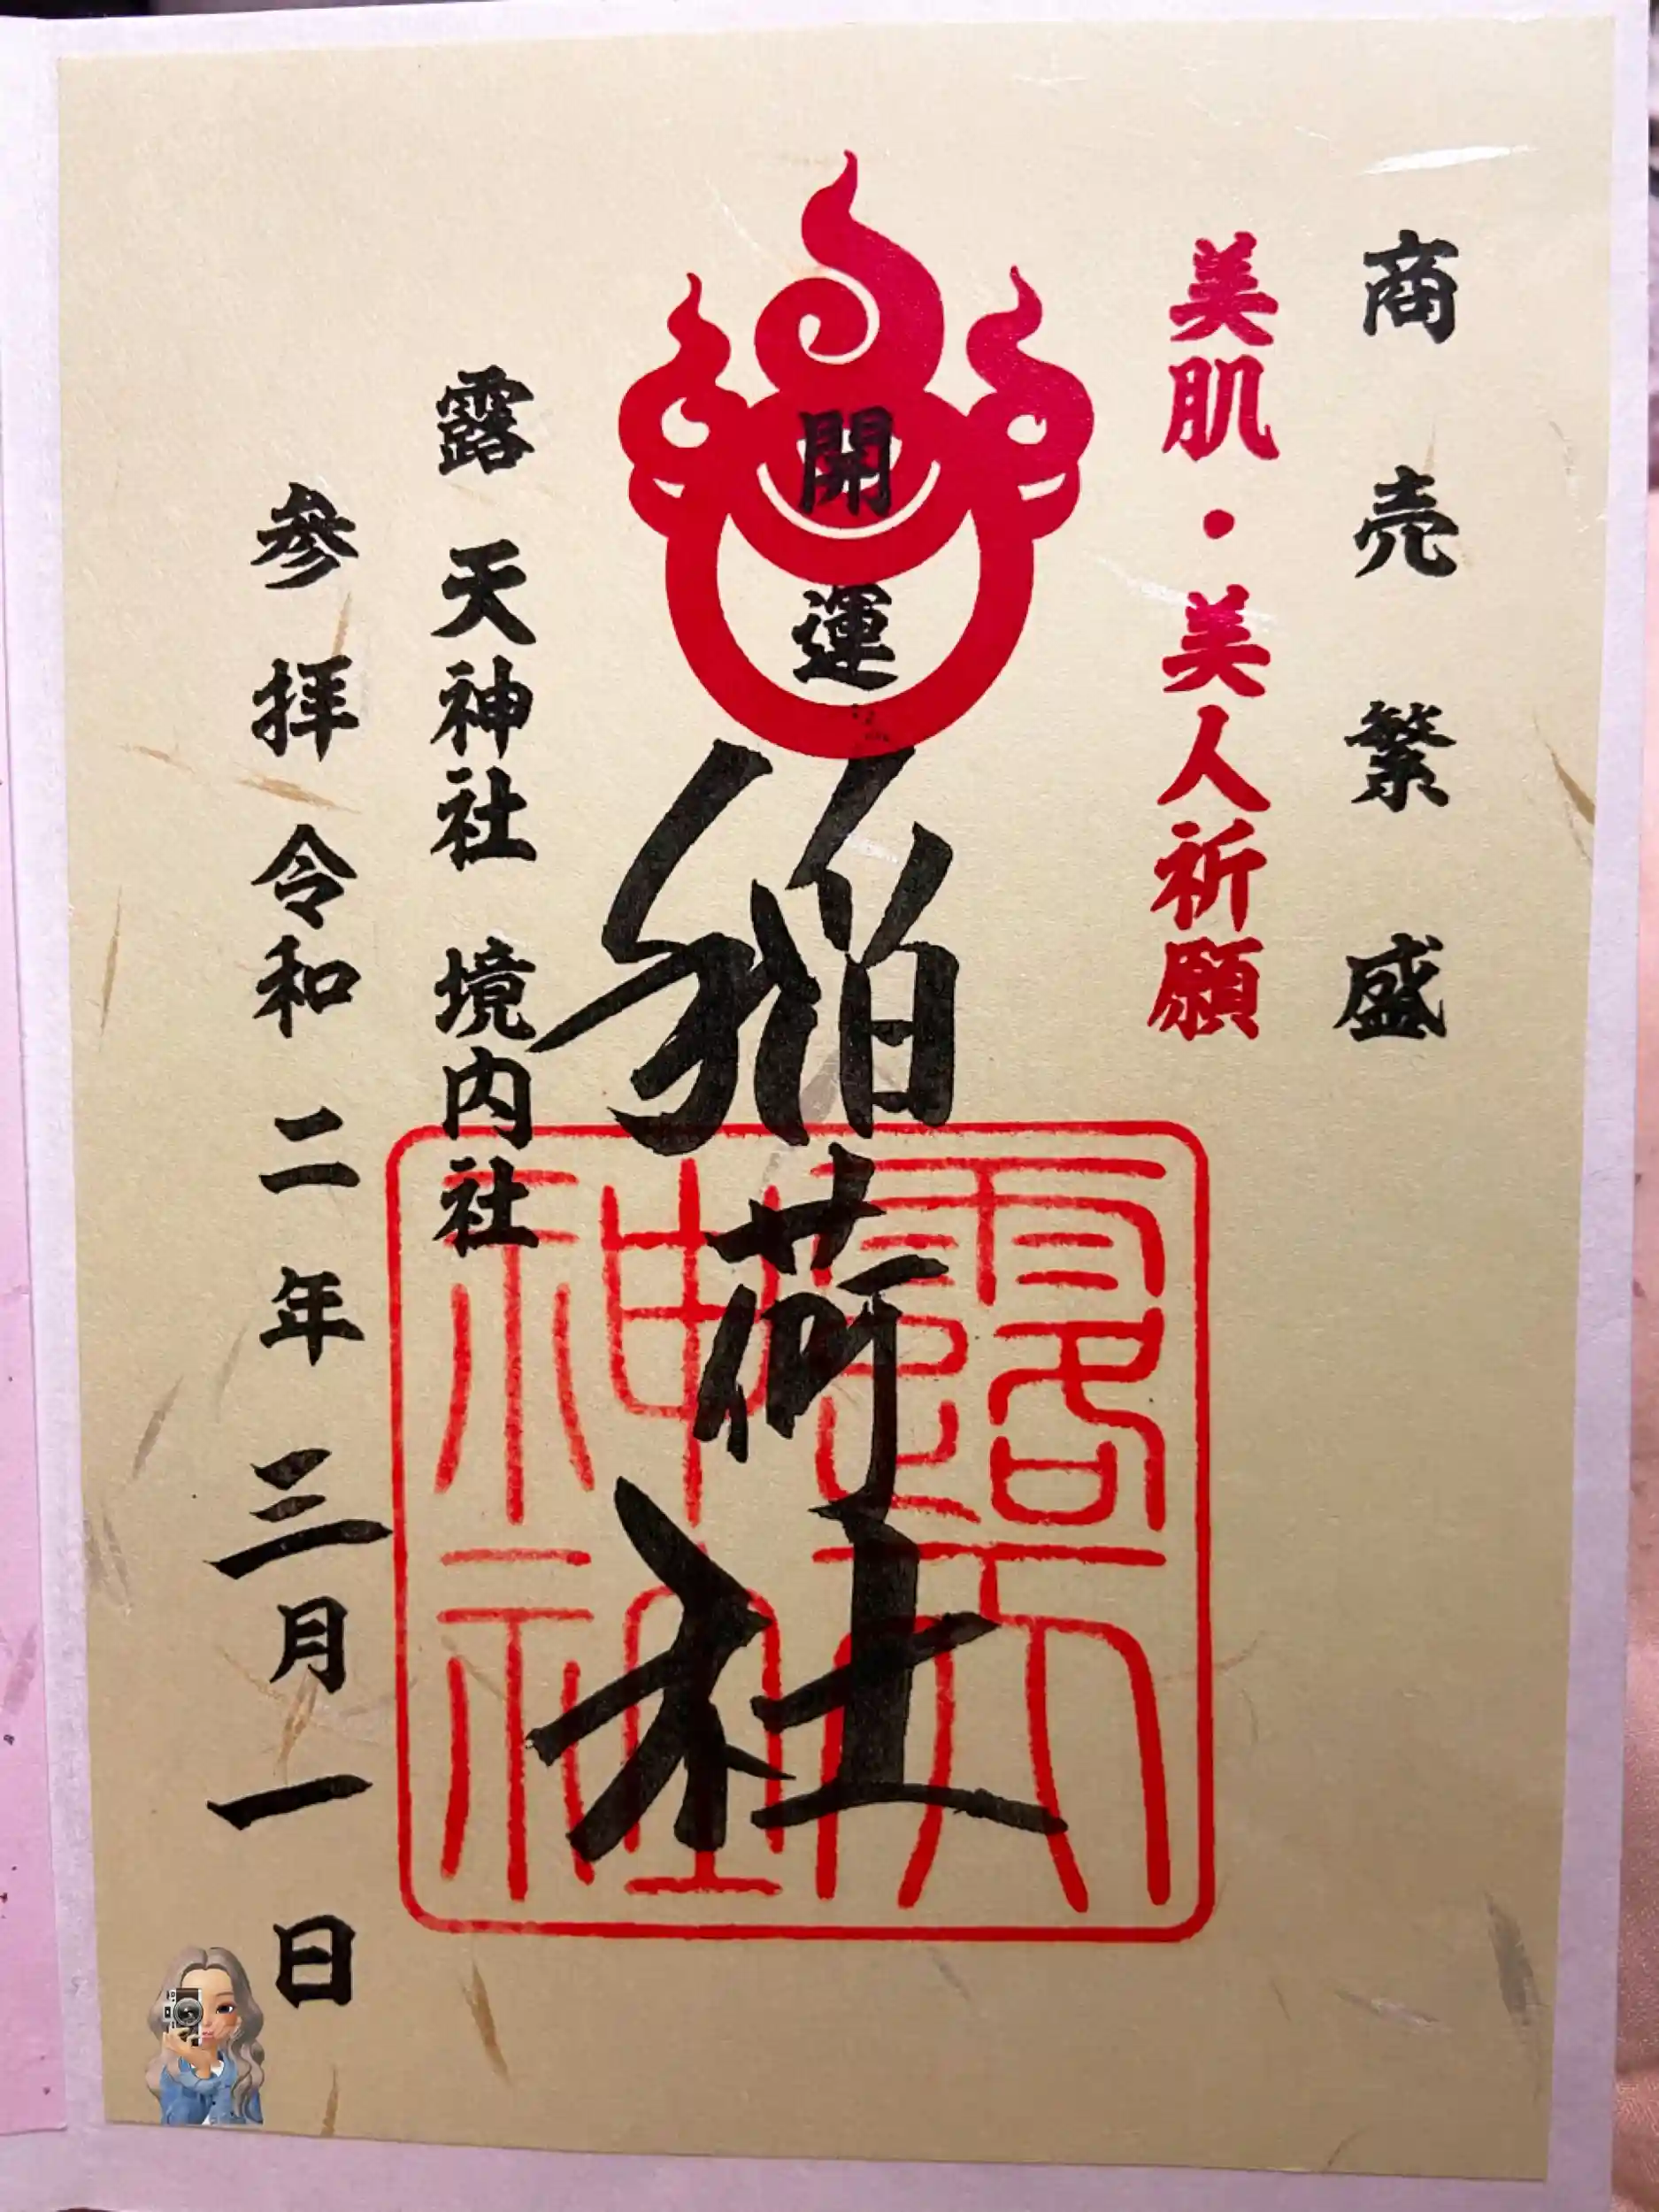 商売繁盛
美肌・美人祈願
開運
稲荷社
露天神社
露天神社 境内社
参拝 令和二年 三月一日